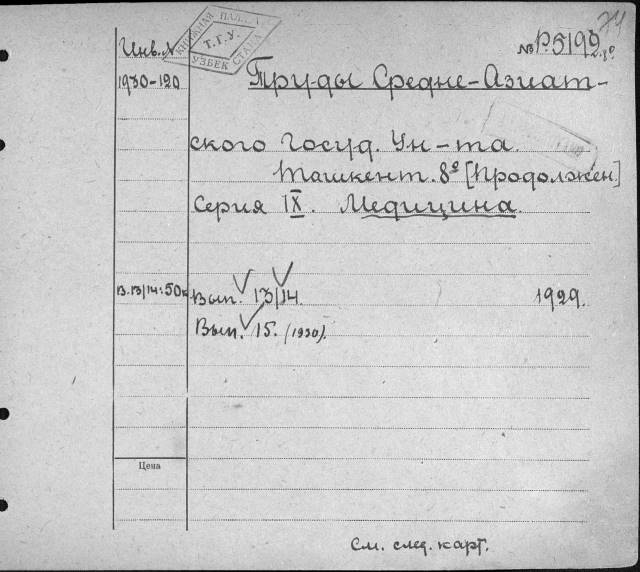 74
Инв. №
КНИЖНАЯ ПАЛАТА
Т.Г.У.
УЗБЕКСТАНА
№ Р5192 8°
1930-120
Труды Средне-Азиат-
ского Госуд. Ун-та.
Ташкент. 8° [Продолжен]
Серия IX. Медицина.
В.13/14:50к
Вып. 13/14.
1929.
Вып. 15. (1930).
Цена
См. след. карт.